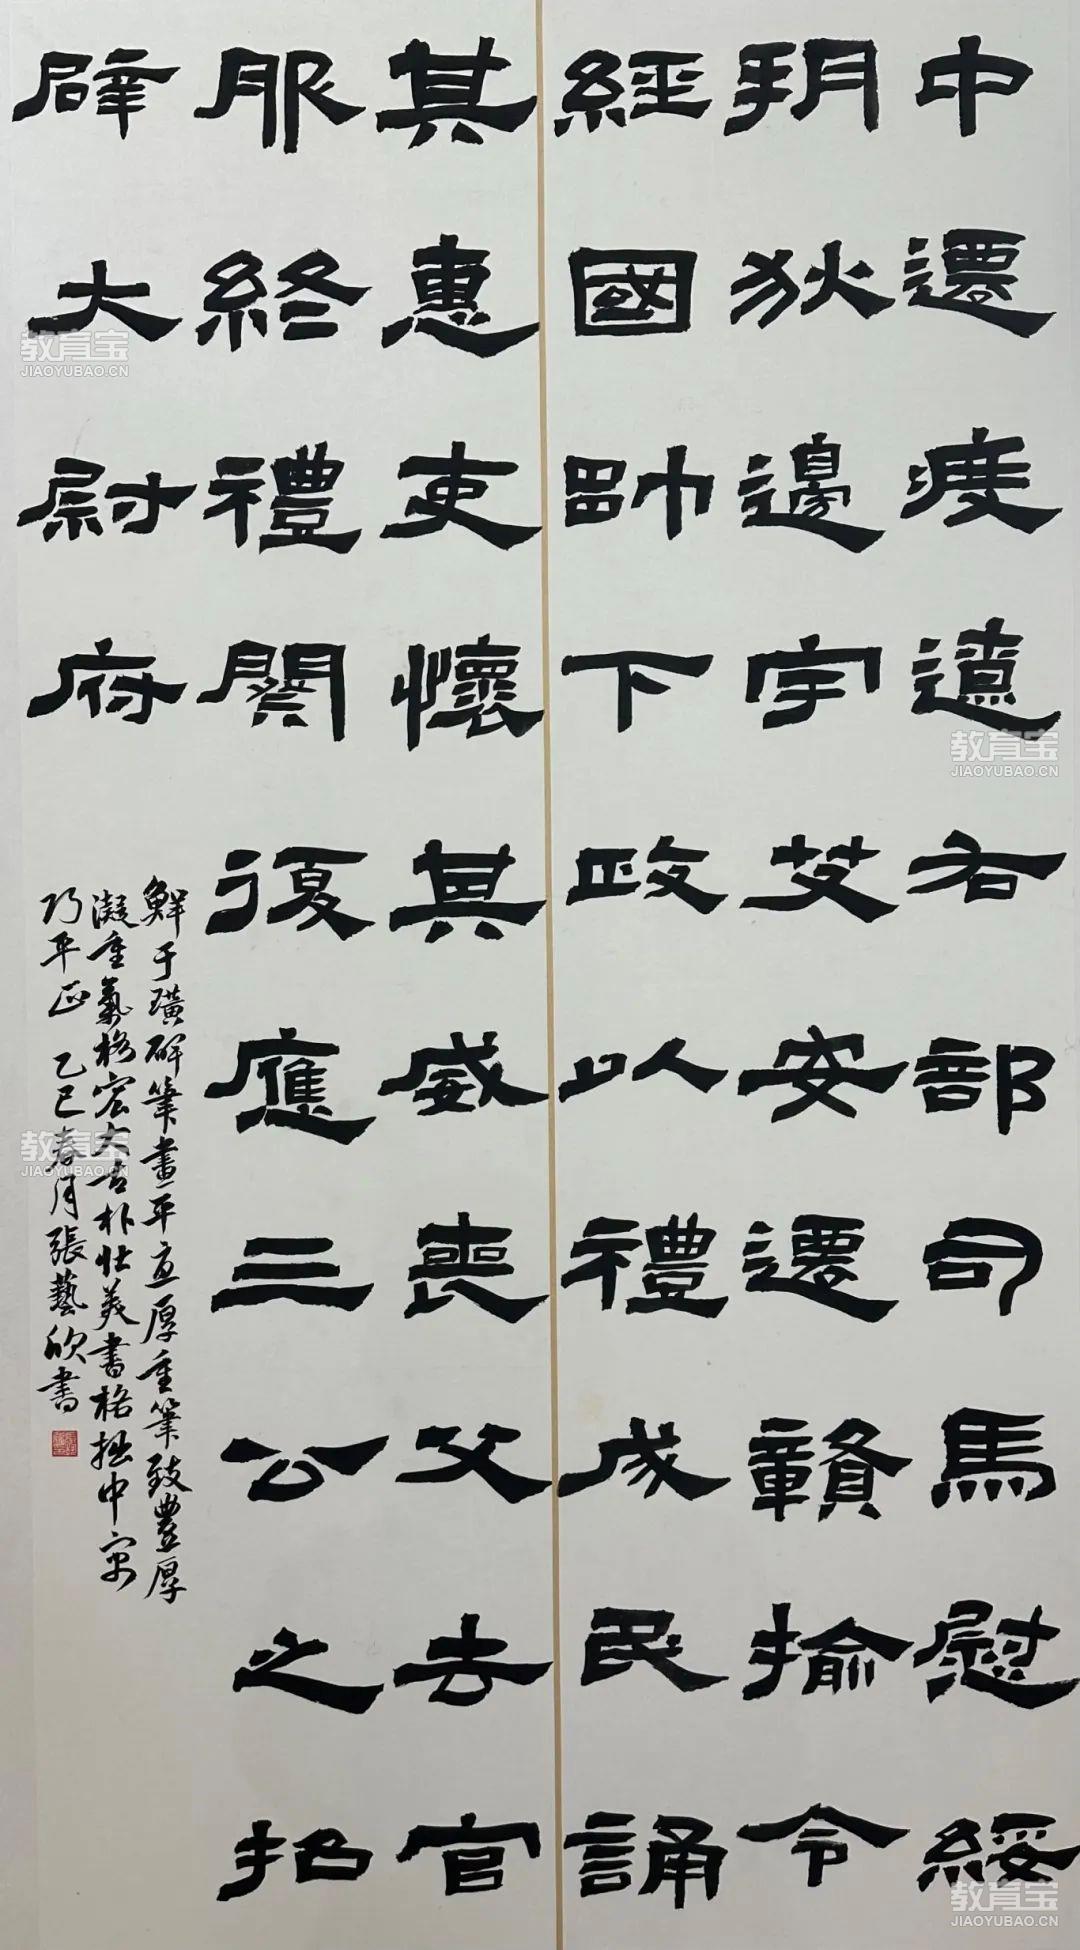 中遷度遼右部司馬慰綏
朔狄邊宇艾安遷贛揄令
經國帥下政以禮成民誦
其惠吏懷其威喪父去官
服終禮闋復應三公之招
辟大尉府
鮮于璜碑筆畫平直厚重筆致豐厚
凝重氣格宏大古朴壯美書格拙中寓
巧平正 乙巳春月張藝欣書
教育宝
JIAOYUBAO.CN
教育宝
JIAOYUBAO.CN
教育宝
JIAOYUBAO.CN
教育宝
JIAOYUBAO.CN